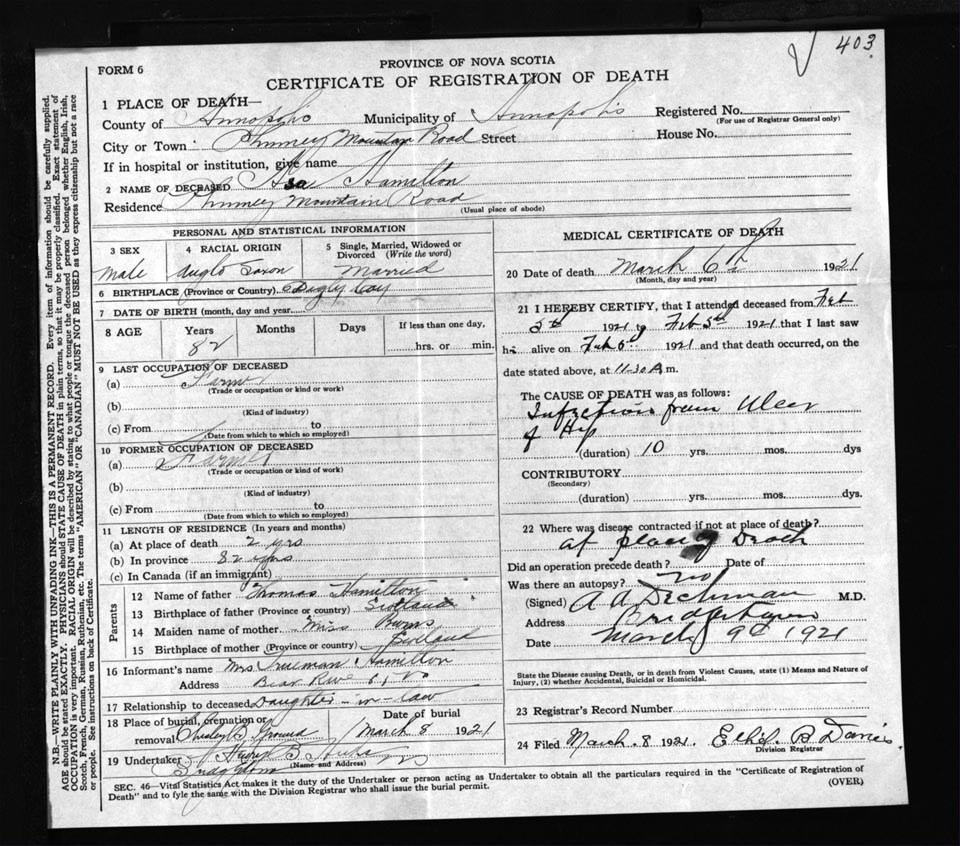 403
FORM 6
PROVINCE OF NOVA SCOTIA
CERTIFICATE OF REGISTRATION OF DEATH
1 PLACE OF DEATH—
County of Annapolis Municipality of Annapolis Registered No.
(For use of Registrar General only)
City or Town Phinney Mountain Road Street House No.
If in hospital or institution, give name
2 NAME OF DECEASED Asa Hamilton
Residence Phinney Mountain Road
(Usual place of abode)
PERSONAL AND STATISTICAL INFORMATION
3 SEX 4 RACIAL ORIGIN 5 Single, Married, Widowed or Divorced (Write the word)
Male Anglo Saxon Married
6 BIRTHPLACE (Province or Country) Digby Coy
7 DATE OF BIRTH (month, day and year)
8 AGE Years Months Days If less than one day,
82 hrs. or min.
9 LAST OCCUPATION OF DECEASED
(a) Farmer
(Trade or occupation or kind or work)
(b)
(Kind of industry)
(c) From to
(Date from which to which so employed)
10 FORMER OCCUPATION OF DECEASED
(a) Farmer
(Trade or occupation or kind of work)
(b)
(Kind of industry)
(c) From to
(Date from which to which so employed)
11 LENGTH OF RESIDENCE (In years and months)
(a) At place of death 2 yrs
(b) In province 82 yrs
(c) In Canada (if an immigrant)
Parents
12 Name of father Thomas Hamilton
13 Birthplace of father (Province or country) Scotland
14 Maiden name of mother Miss Burns
15 Birthplace of mother (Province or country)
16 Informant's name Mrs Trueman Hamilton
Address Bear River
17 Relationship to deceased Daughter-in-law
18 Place of burial, cremation or removal Ground
Date of burial March 8 1921
19 Undertaker Harry B
(Name and Address)
MEDICAL CERTIFICATE OF DEATH
20 Date of death March 6th 1921
(Month, day and year)
21 I HEREBY CERTIFY, that I attended deceased from Feb
5th 1921 to Feb 5th 1921 that I last saw
him alive on Feb 5th 1921 and that death occurred, on the
date stated above, at 11-30 m.
The CAUSE OF DEATH was as follows:
Infection from Ulcer
of Hip
(duration) 10 yrs. mos. dys
CONTRIBUTORY
(Secondary)
(duration) yrs. mos. dys.
22 Where was disease contracted if not at place of death?
at place of Death
Did an operation precede death? Date of
Was there an autopsy? no
(Signed) A A Dechman M.D.
Address Bridgetown
Date March 9th 1921
State the Disease causing Death, or in death from Violent Causes, state (1) Means and Nature of
Injury, (2) whether Accidental, Suicidal or Homicidal.
23 Registrar's Record Number
24 Filed March 8 1921. Ethel B Davies
Division Registrar
SEC. 46—Vital Statistics Act makes it the duty of the Undertaker or person acting as Undertaker to obtain all the particulars required in the "Certificate of Registration of
Death" and to fyle the same with the Division Registrar who shall issue the burial permit.
(OVER)
N.B.—WRITE PLAINLY WITH UNFADING INK—THIS IS A PERMANENT RECORD. Every item of information should be carefully supplied.
AGE should be stated EXACTLY. PHYSICIANS should STATE CAUSE OF DEATH in plain terms, so that it may be properly classified. Exact statement of
OCCUPATION is very important. RACIAL ORIGIN will be described by stating to what people or tongue the deceased person belonged whether English, Irish,
Scotch, French, German, Russian, Ruthenian, etc. The terms "AMERICAN" OR "CANADIAN" MUST NOT BE USED as they express citizenship but not a race
or people. See instructions on back of Certificate.